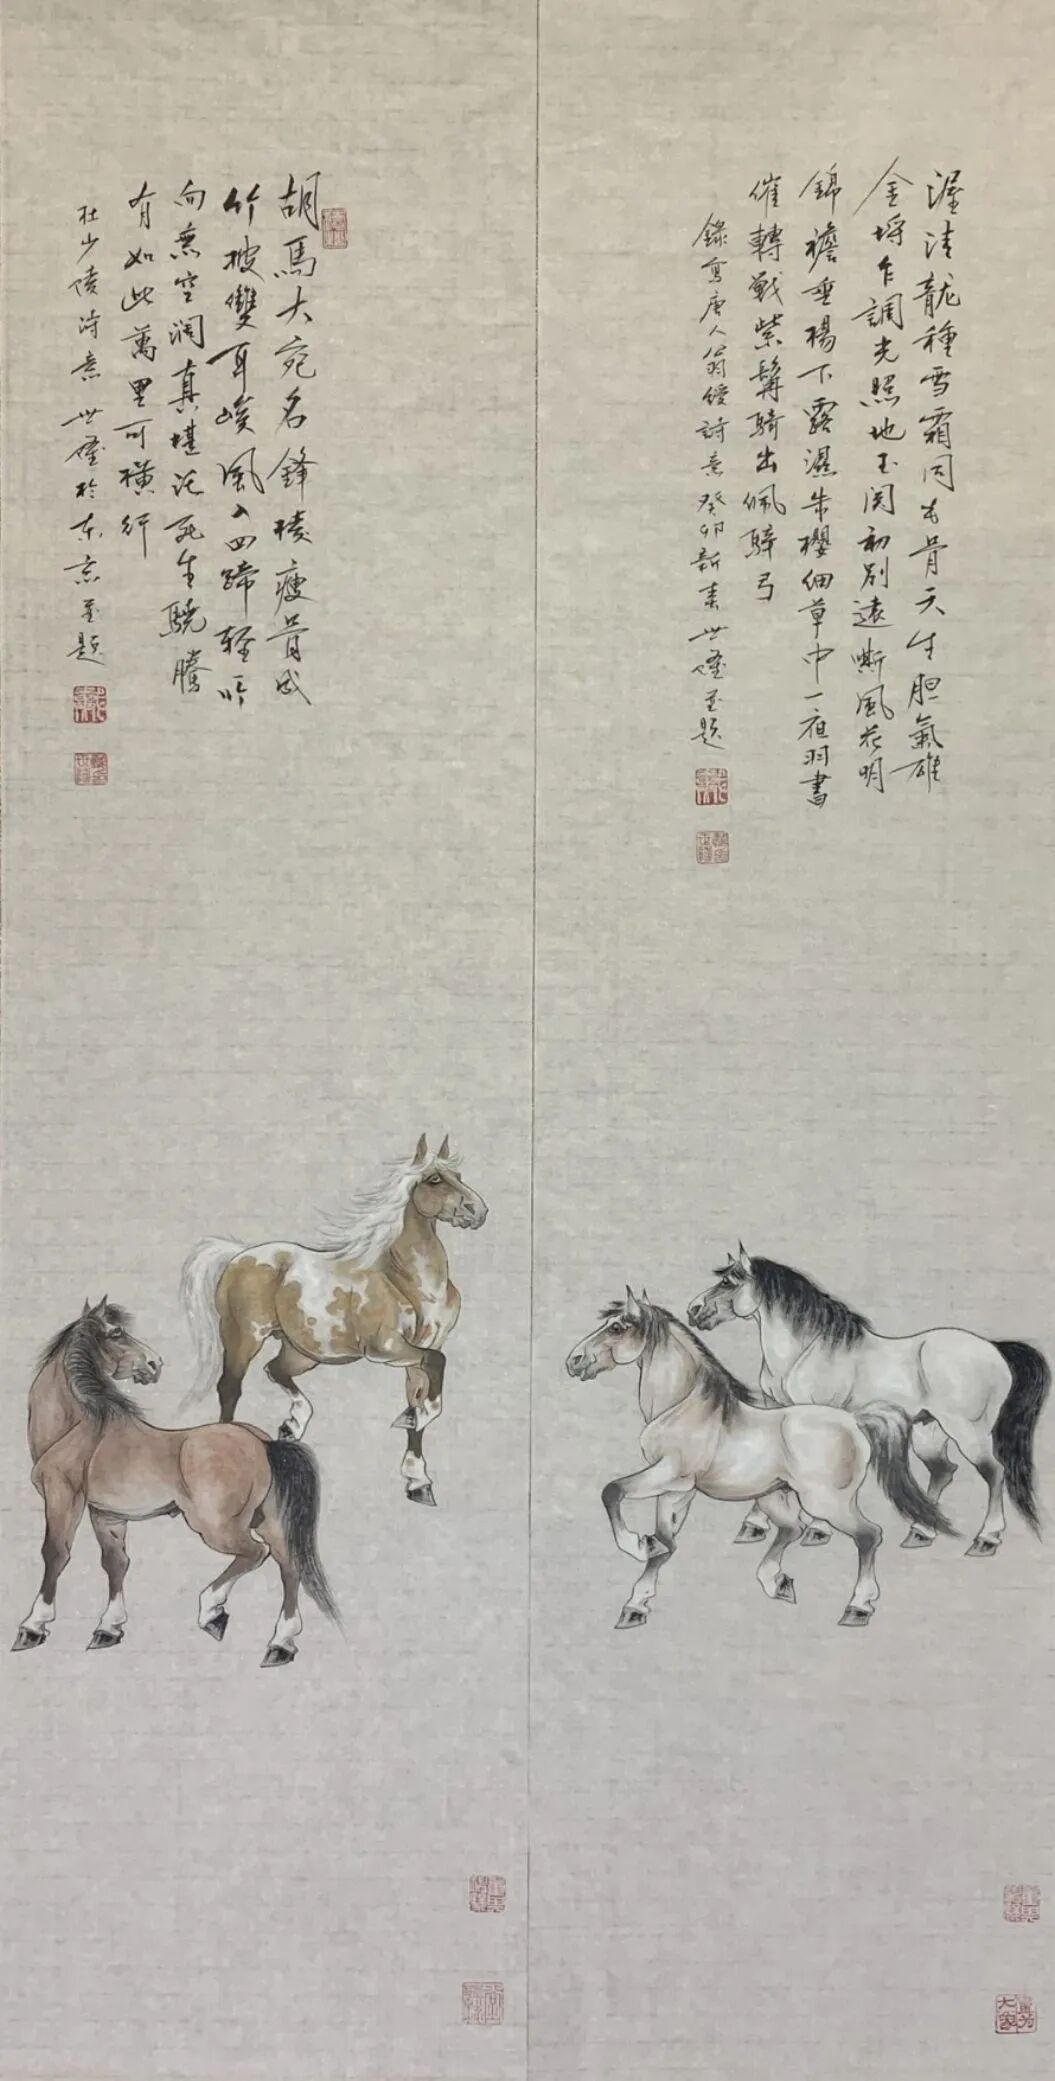 渥洼龍種雪霜同毛骨天生胆氣雄
金埒乍調光照地玉関初別遠嘶風花明
錦襜垂楊下露濕朱纓細草中一夜羽書
催轉戰紫髯騎出佩騂弓
錄寫唐人翁綬詩意癸卯新春世题
胡馬大宛名鋒稜瘦骨成
竹披雙耳峻風入四蹄輕所
向無空阔真堪託死生驍騰
有如此萬里可橫行
杜少陵诗意世於东京题